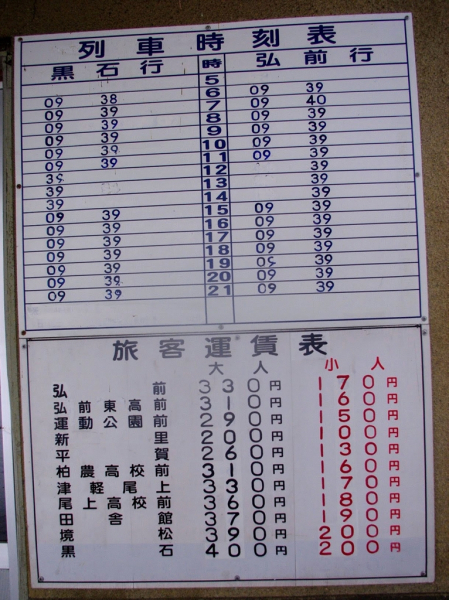 列車時刻表
黒石行 時 弘前行
5
09 38 6 09 39
09 39 7 09 40
09 39 8 09 39
09 39 9 09 39
09 39 10 09 39
09 39 11 09 39
39 12 39
39 13 39
39 14 39
09 39 15 09 39
09 39 16 09 39
09 39 17 09 39
09 39 18 09 39
09 39 19 09 39
09 39 20 09 39
09 39 21 09 39
旅客運賃表
大人 小人
弘前 330円 170円
弘前東高前 310円 160円
運動公園前 290円 150円
新里 200円 100円
平賀 260円 130円
柏農高校前 310円 160円
津軽尾上 330円 170円
尾上高校前 360円 180円
田舎館 370円 190円
境松 390円 200円
黒石 400円 200円